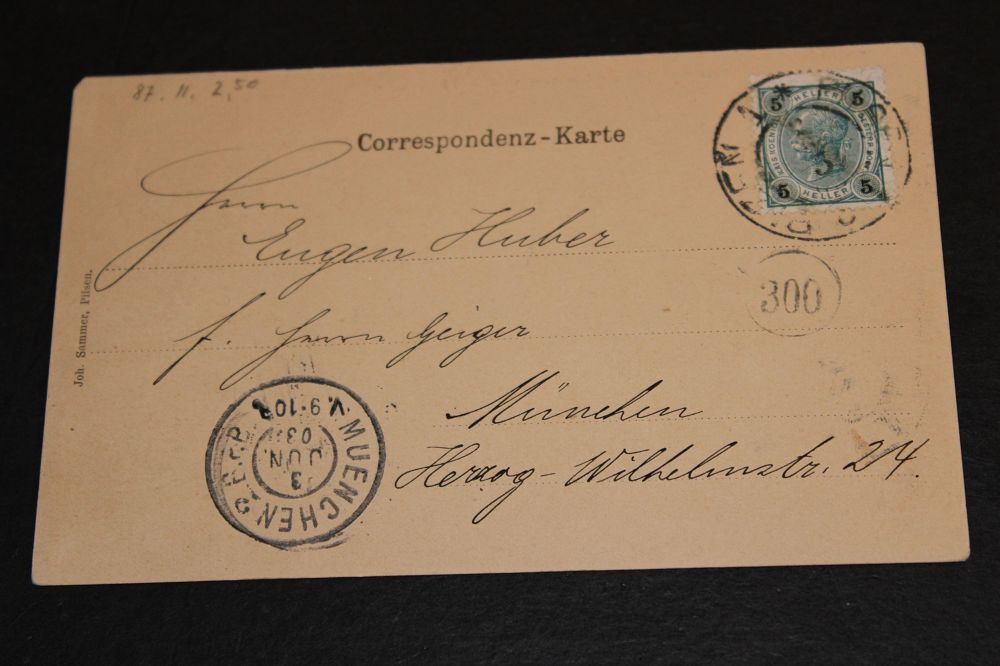 87. 11. 2,50
Correspondenz-Karte
5 HELLER 5
5 HELLER 5
PILSEN 1 *
Herrn
Eugen Huber
300
f. Herrn Geiger
München
Herzog-Wilhelmstr. 24.
Joh. Sammer, Pilsen.
MUENCHEN 2
V. 9-10
03.
JUN.
3